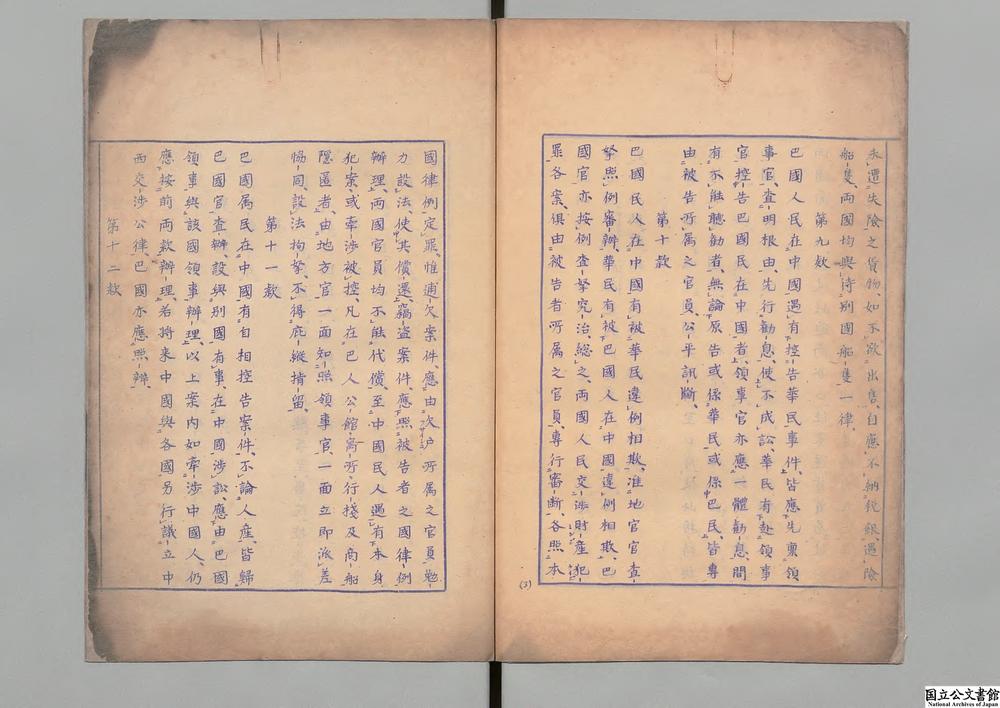 永遭失險之貨物、如不欲出售、自應不納稅銀遇險
船隻両國均與待別國船隻一律、
第九款
巴國人民在中國遇有控告華民事件、皆應先稟領
事官、查明根由、先行勸息、使不成訟、華民有赴領事
官控告巴國民在中國者、領事官亦應一體勸息、間
有不能聽勸者、無論原告或係華民或係巴民、皆專
由被告所属之官員、公平訊斷、
第十款
巴國民人在中國有被華民違例相欺、准地官官查
拏照例審辦、華民有被巴國人在中國違例相欺、巴
國官亦按例查拏究治、総之、両國人民交涉財産犯
罪各案、俱由被告者所属之官員、專行審斷、各照本
(5)
國律例定罪、惟逋欠案件、應由欠户所属之官員勉
力設法、使其償還、竊盗案件、應照被告者之國律例
辦理、両國官員均不能代償、至中國民人遇有本身
犯案、或牽涉被控、凡在巴人公館寓所、行棧及商船
隠匿者、由地方官一面知照領事官、一面立即派差
恊同、設法拘拏、不得庇縱掯留、
第十一款
巴國属民在中國有自相控告案件、不論人産、皆歸
巴國官查辦、設與別國有事、在中國涉訟、應由巴國
領事與該國領事辦理、以上案内如牽涉中國人、仍
應按前両款辦理、若將来中國與各國另行議立中
西交涉公律、巴國亦應照辦、
第十二款
国立公文書館
National Archives of Japan